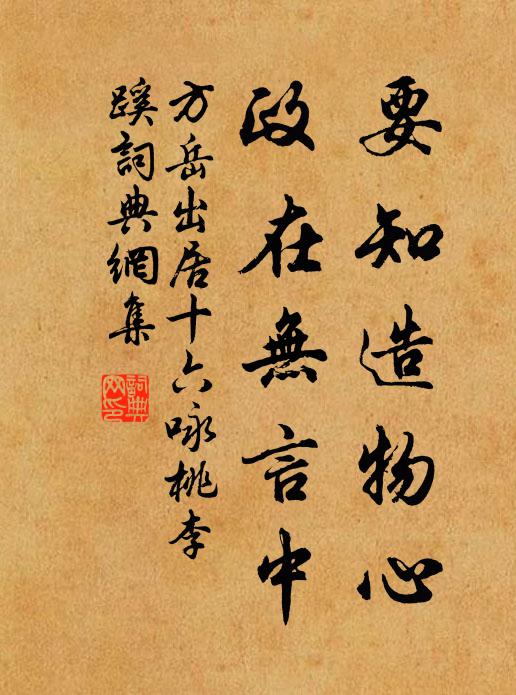 要知造物心
政在無言中
方岳出居十六咏桃李
蹊詞典網集
詞典网印